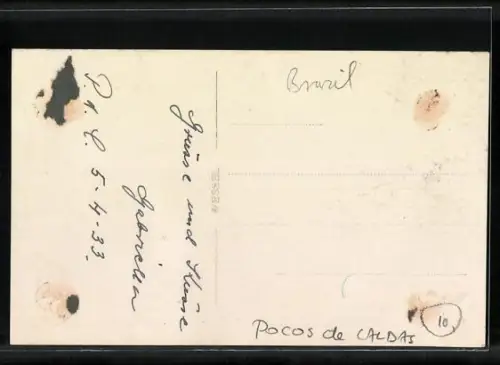 P. d. C. 5-4-33.
Grüsse und Küsse
Brazil
POCOS de CALDAS
10